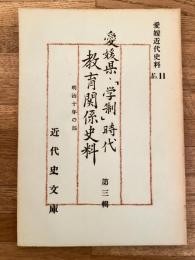 愛媛近代史料
№11
愛媛県「学制」時代
教育関係史料
第三輯
明治十年の部
近代史文庫